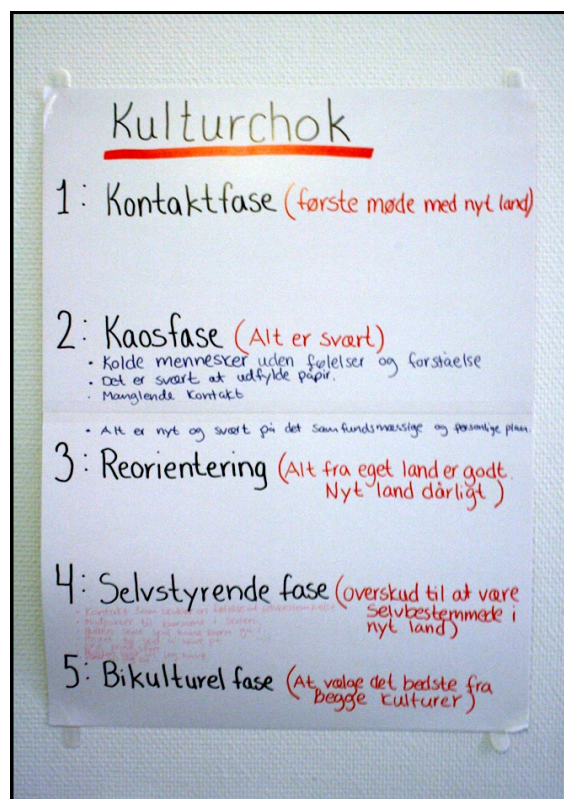 Kulturchok
1: Kontaktfase (første møde med nyt land)
2: Kaosfase (Alt er svært)
• Kolde mennesker uden følelser og forståelse
• Det er svært at udfylde papir.
• Manglende kontakt
• Alt er nyt og svært på det samfundsmæssige og personlige plan.
3: Reorientering (Alt fra eget land er godt.
Nyt land dårligt)
4: Selvstyrende fase (overskud til at være
selvbestemmede i
nyt land)
• Kontakt som
5: Bikulturel fase (At vælge det bedste fra
begge kulturer)